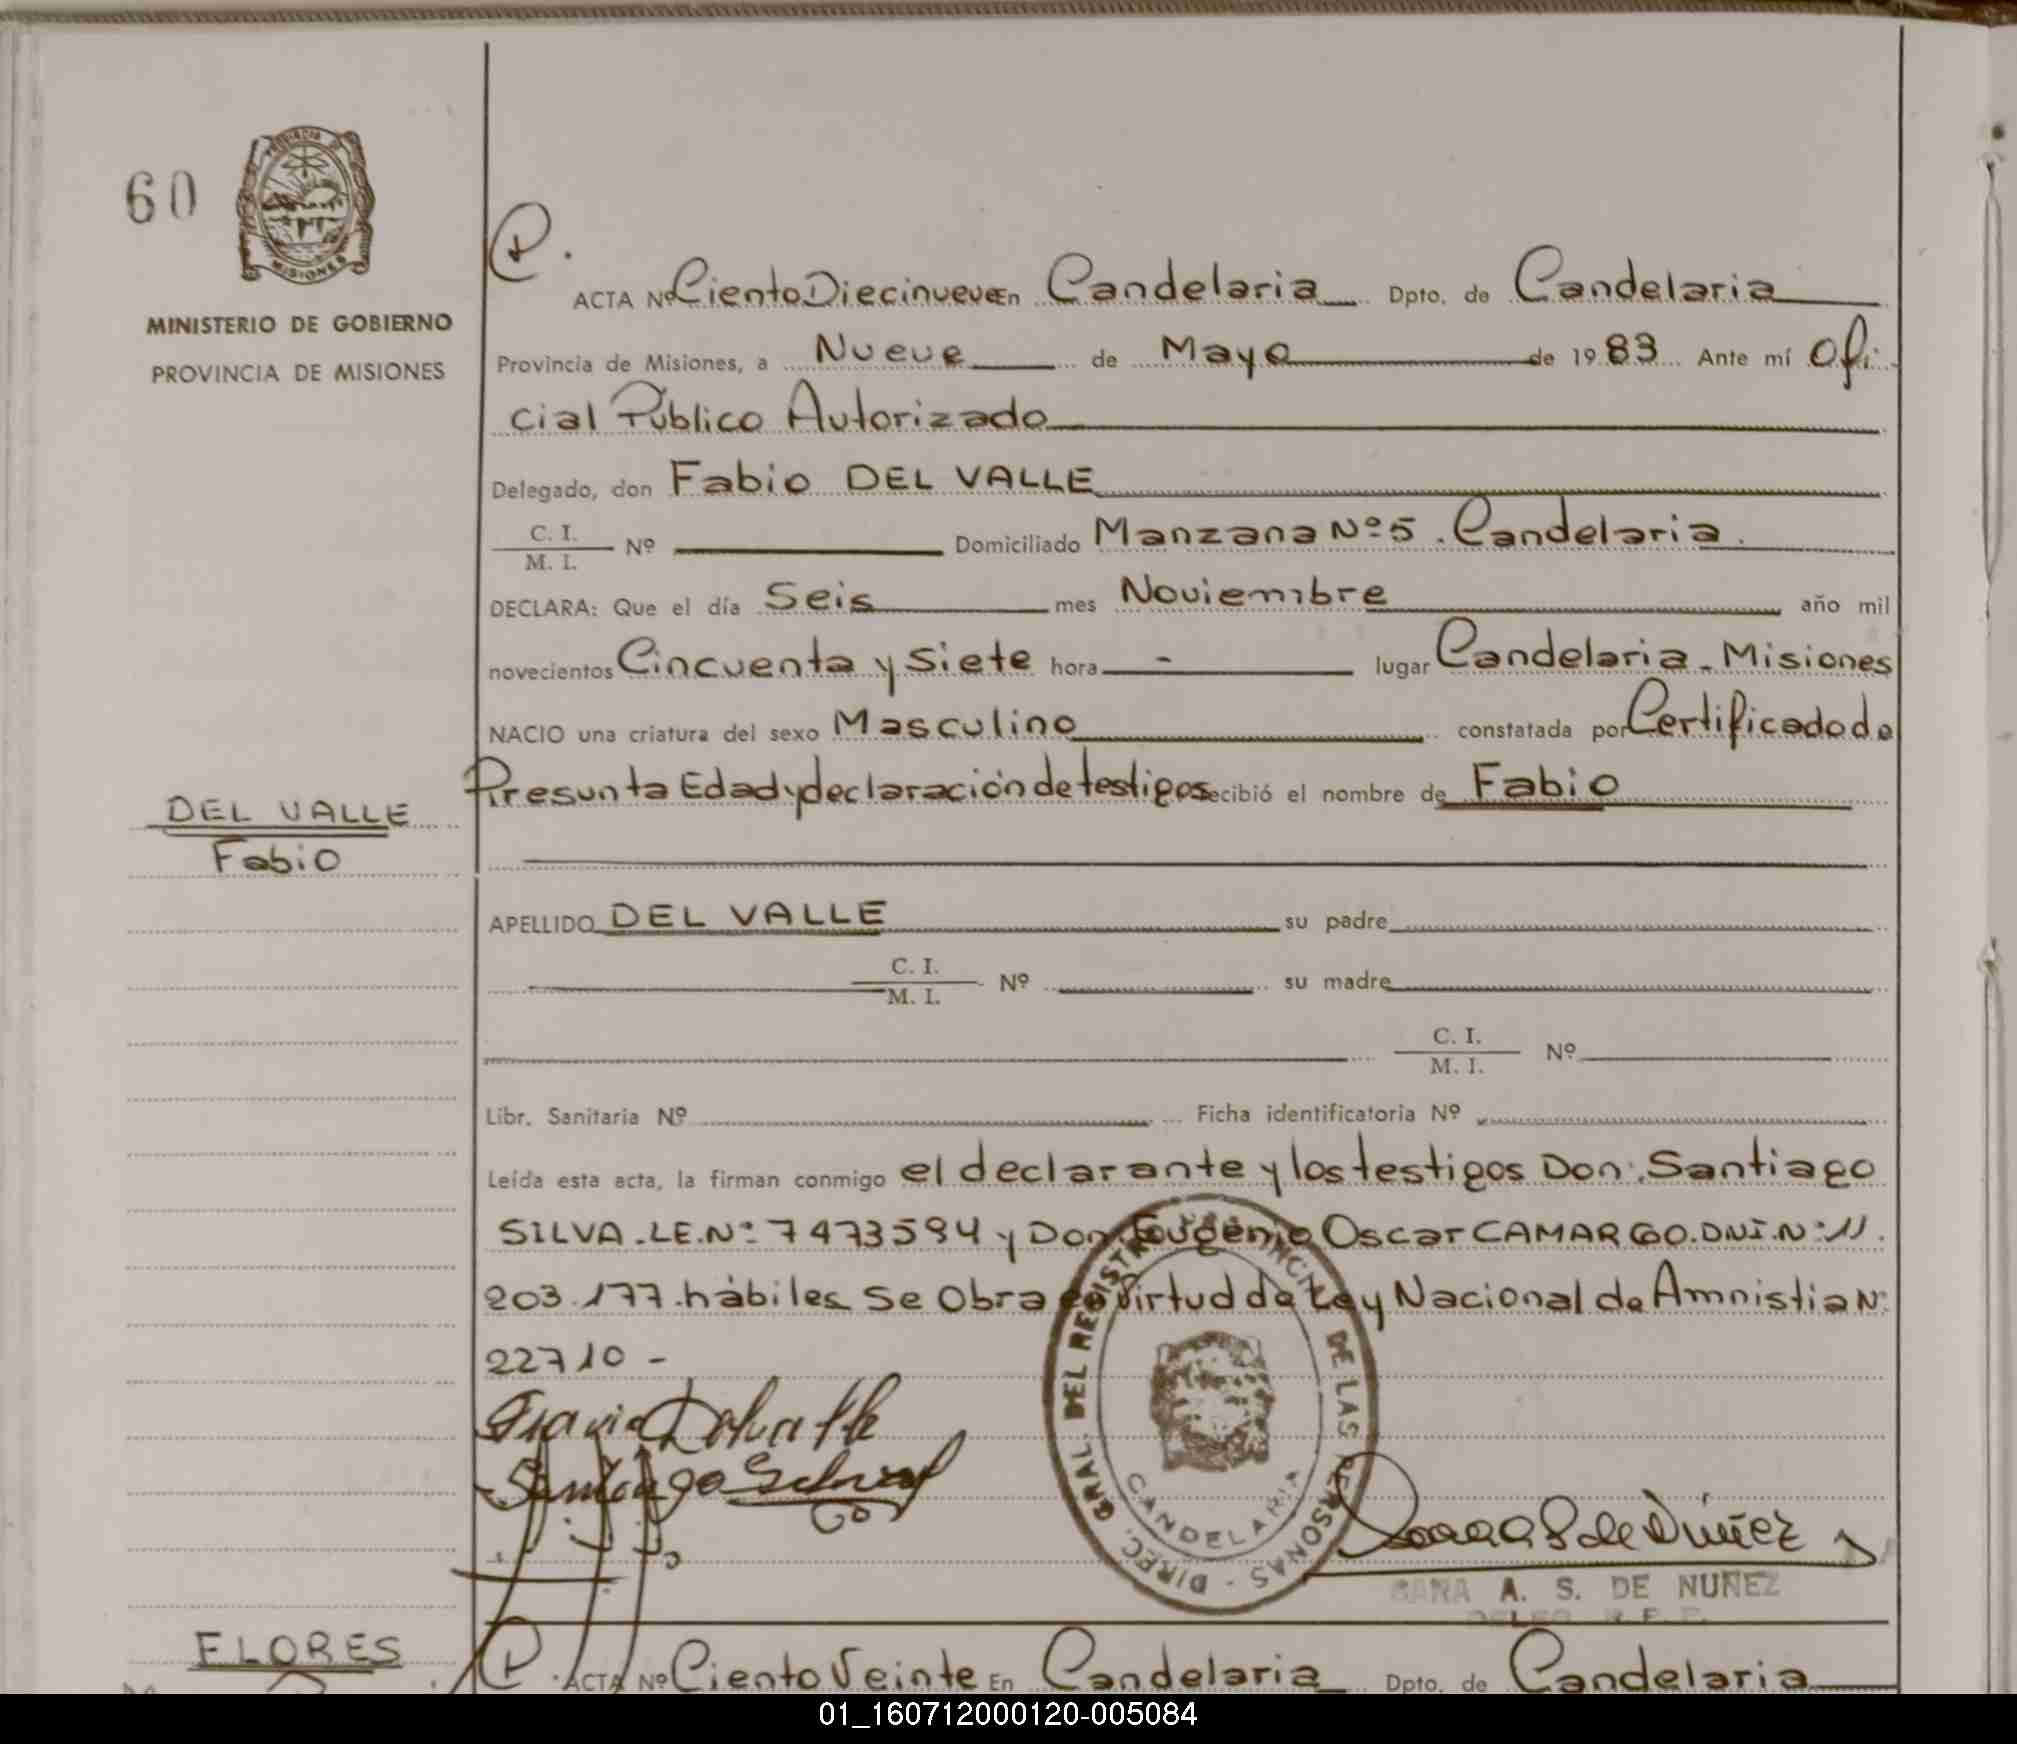 60
PROVINCIA
MISIONES
MINISTERIO DE GOBIERNO
PROVINCIA DE MISIONES
ACTA Nº Ciento Diecinueve En Candelaria Dpto. de Candelaria
Provincia de Misiones, a Nueve de Mayo de 1983 Ante mí Ofi
cial Público Autorizado
Delegado, don Fabio DEL VALLE
C. I.
M. I. Nº Domiciliado Manzana Nº 5. Candelaria.
DECLARA: Que el día Seis mes Noviembre año mil
novecientos Cincuenta y Siete hora - lugar Candelaria - Misiones
NACIO una criatura del sexo Masculino constatada por Certificado de
Presunta Edad y declaración de testigos recibió el nombre de Fabio
DEL VALLE
Fabio
APELLIDO DEL VALLE su padre
C. I.
M. I. Nº su madre
C. I.
M. I. Nº
Libr. Sanitaria Nº Ficha identificatoria Nº
Leída esta acta, la firman conmigo el declarante y los testigos Don: Santiago
SILVA. LE. Nº 7473594 y Don Eugenio Oscar CAMARGO. DNI. Nº 11.
203.177. hábiles Se Obra en Virtud de Ley Nacional de Amnistia Nº
22710 -
DIREC. GRAL. DEL REGISTRO PROVINCIAL DE LAS PERSONAS -
CANDELARIA
SARA A. S. DE NUÑEZ
FLORES
ACTA Nº Ciento Veinte En Candelaria Dpto. de Candelaria
01_160712000120-005084